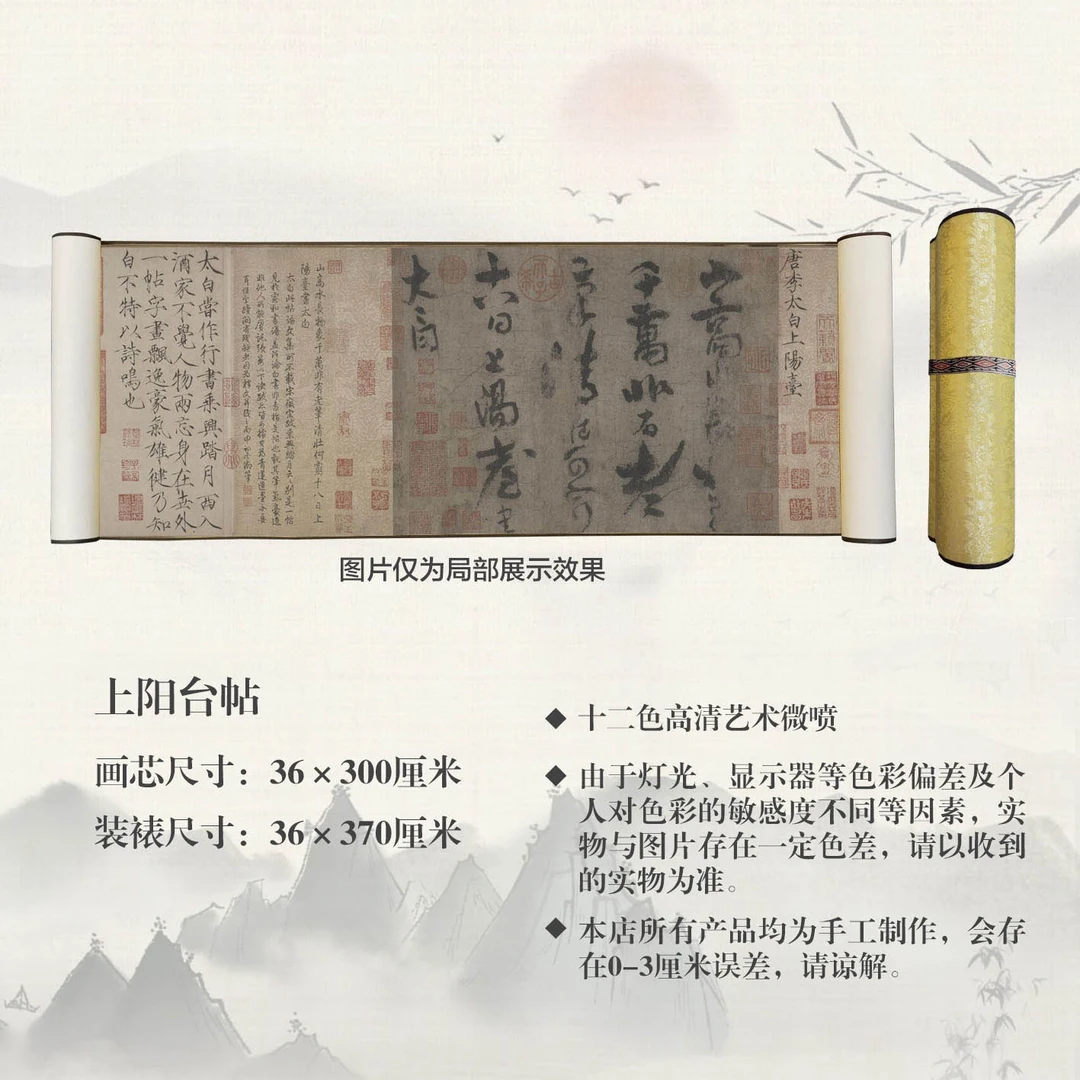 唐李太白上陽臺
山高水長物象
千萬非有老
筆清壯何窮
十八日上陽臺書
太白
山高水長物象千萬非有老筆清壯何窮十八日上
陽臺書太白
太白嘗作行書乘興踏月西入
酒家不覺人物兩忘身在世外
一帖字畫飄逸豪氣雄健乃知
白不特以詩鳴也
图片仅为局部展示效果
上阳台帖
画芯尺寸：36×300厘米
装裱尺寸：36×370厘米
◆ 十二色高清艺术微喷
◆ 由于灯光、显示器等色彩偏差及个
人对色彩的敏感度不同等因素，实
物与图片存在一定色差，请以收到
的实物为准。
◆ 本店所有产品均为手工制作，会存
在0-3厘米误差，请谅解。